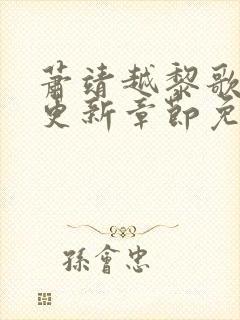 萧靖越黎歌
更新章节免
孫會忠